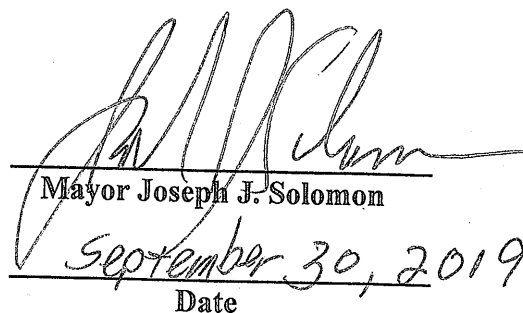 Mayor Joseph J. Solomon
September 30, 2019
Date